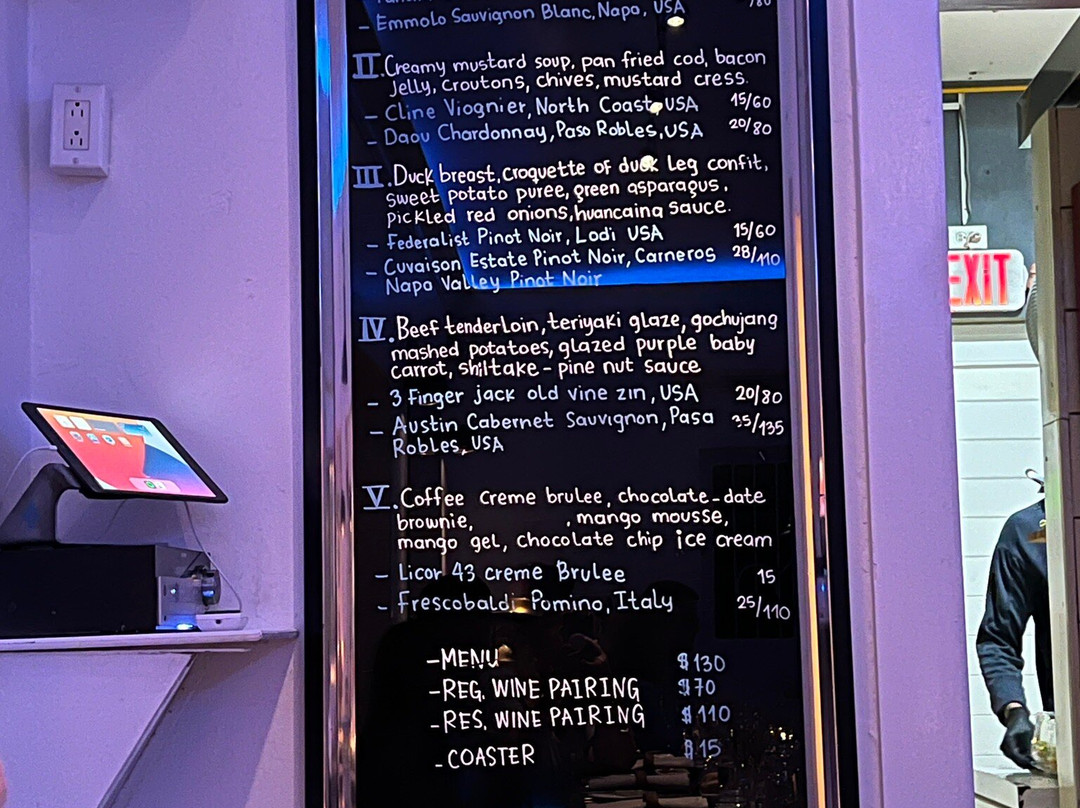 - Emmolo Sauvignon Blanc, Napa, USA /80
II. Creamy mustard soup, pan fried cod, bacon
Jelly, croutons, chives, mustard cress.
- Cline Viognier, North Coast, USA 15/60
- Daou Chardonnay, Paso Robles, USA 20/80
III. Duck breast, croquette of duck Leg confit,
sweet potato puree, green asparagus,
pickled red onions, huancaina sauce.
- Federalist Pinot Noir, Lodi USA 15/60
- Cuvaison Estate Pinot Noir, Carneros 28/110
Napa Valley Pinot Noir
IV. Beef tenderloin, teriyaki glaze, gochujang
mashed potatoes, glazed purple baby
carrot, shiitake - pine nut sauce
- 3 Finger jack old vine zin, USA 20/80
- Austin Cabernet Sauvignon, Pasa 35/135
Robles, USA
V. Coffee creme brulee, chocolate-date
brownie, , mango mousse,
mango gel, chocolate chip ice cream
- Licor 43 creme Brulee 15
- Frescobaldi Pomino, Italy 25/110
-MENU $130
-REG. WINE PAIRING $70
-RES. WINE PAIRING $110
-COASTER $15
EXIT